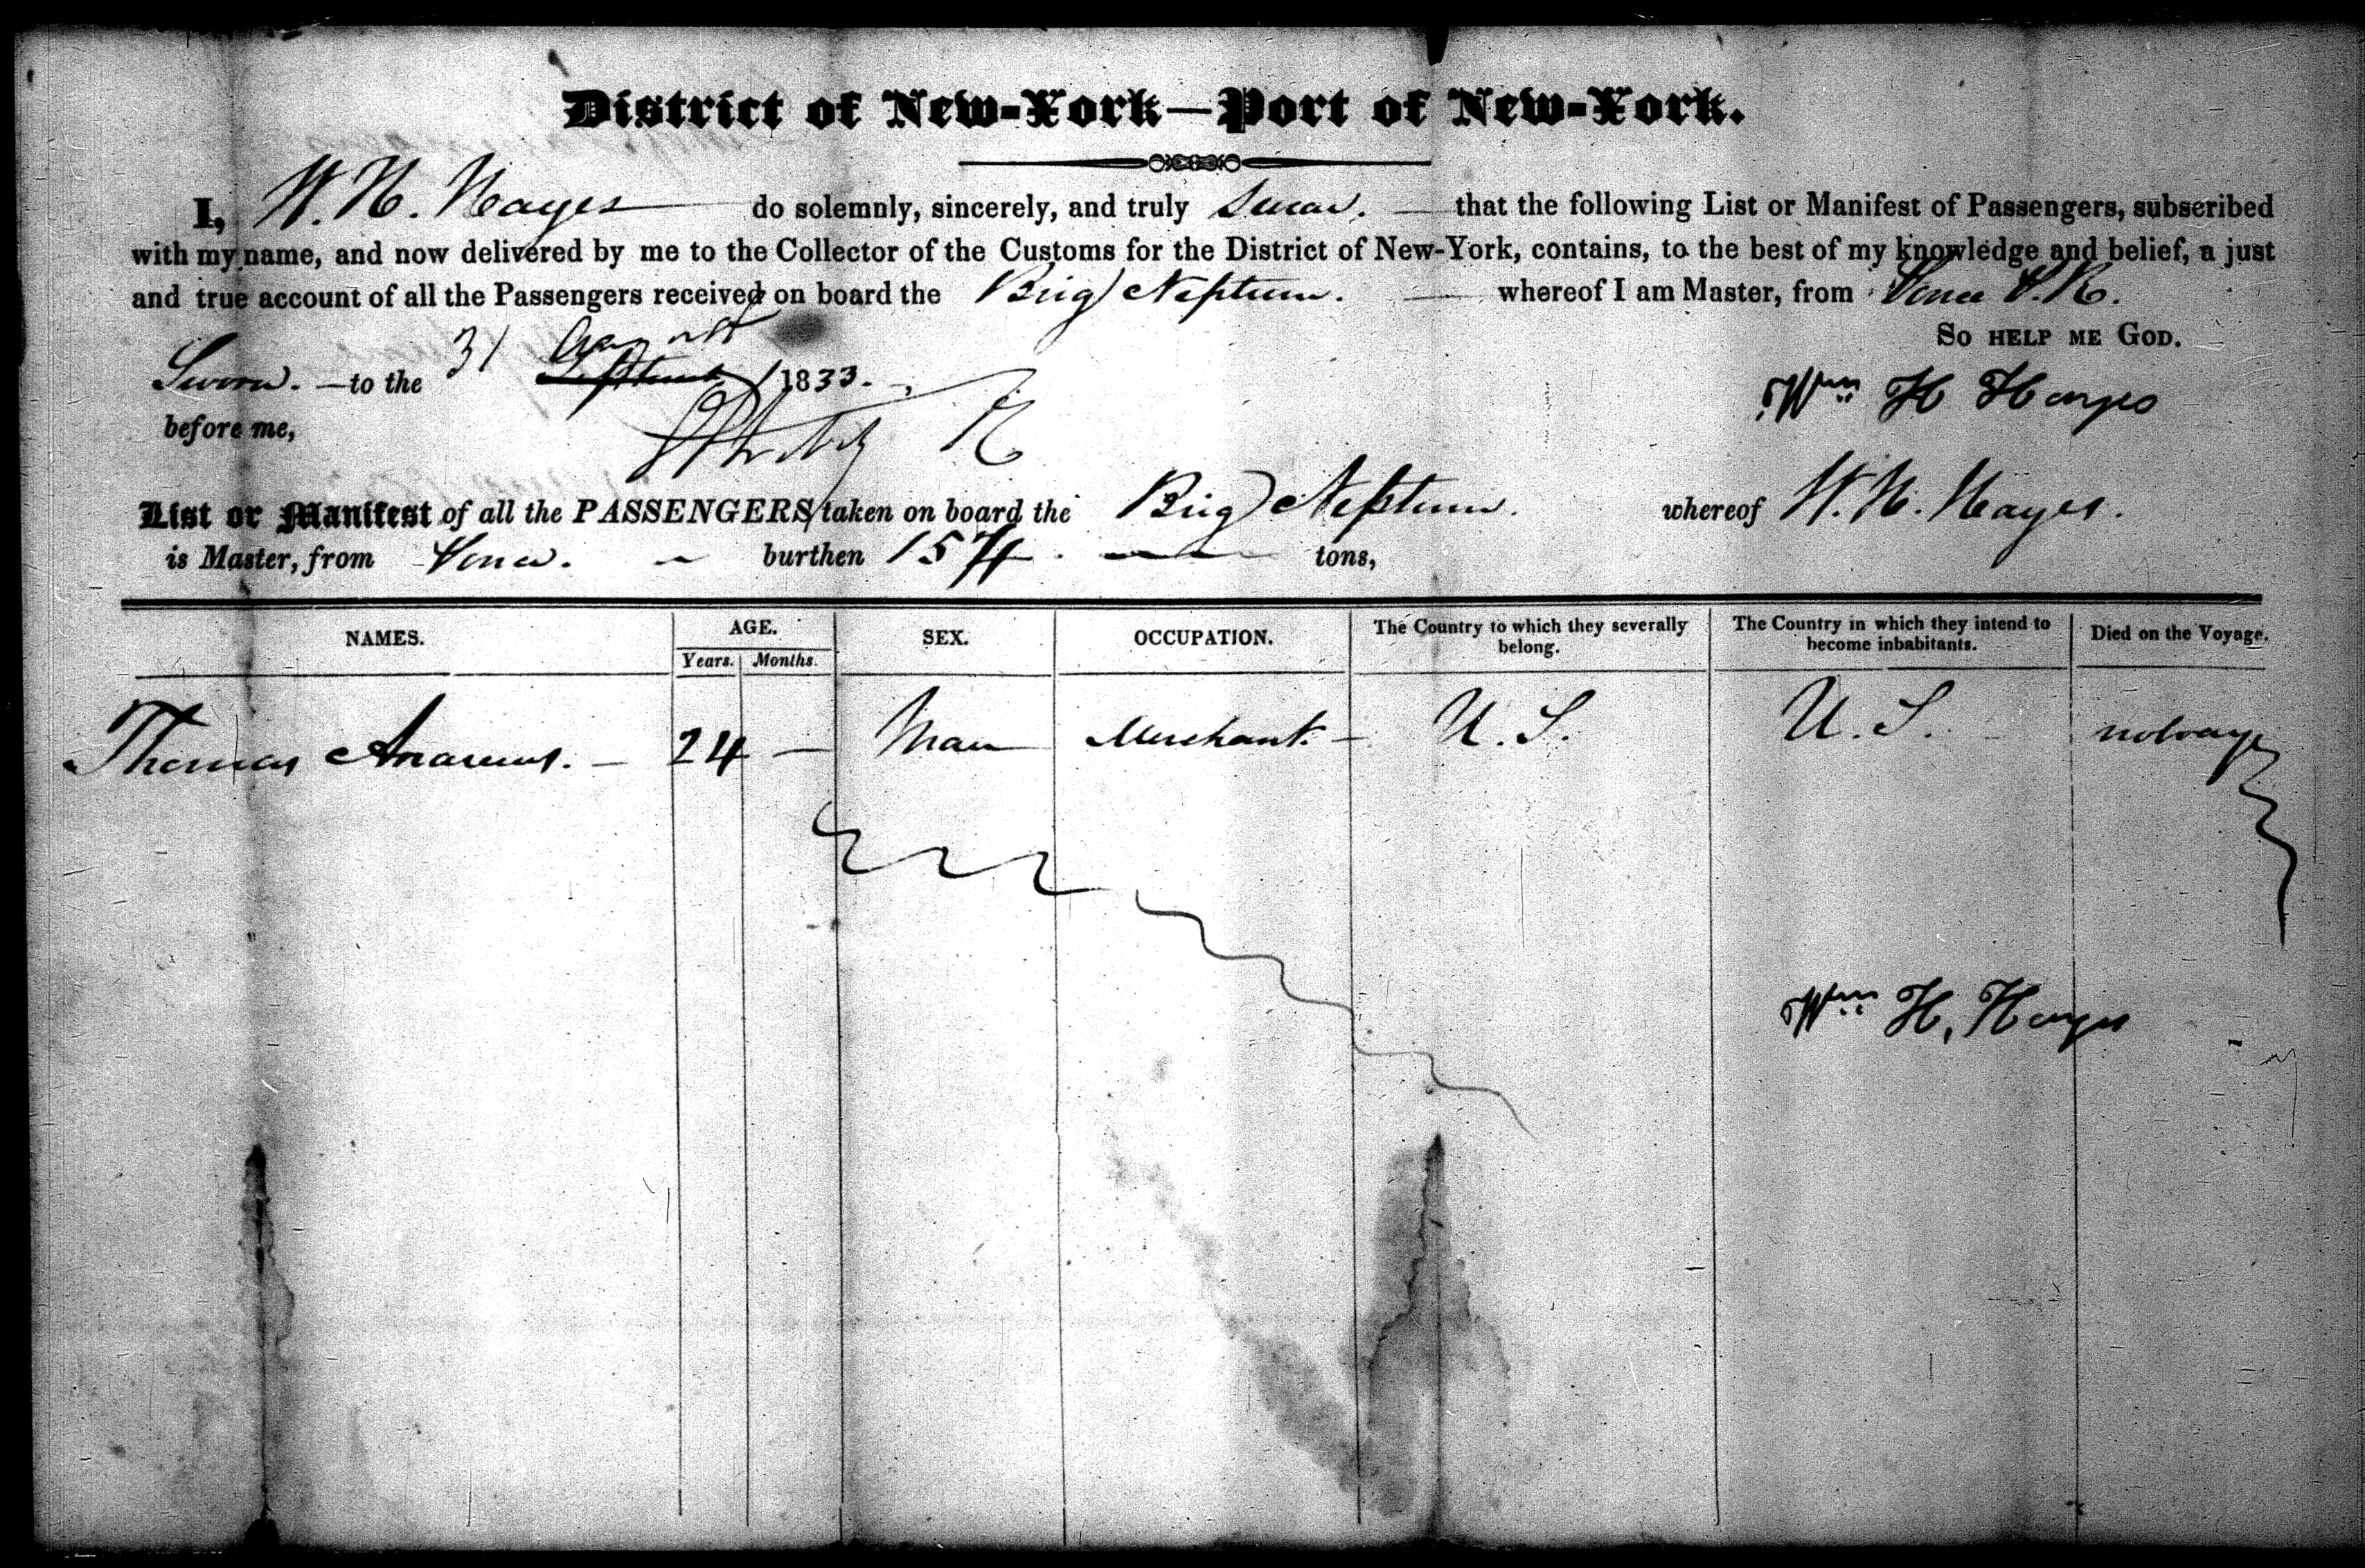 District of New-York—Port of New-York.
I, W. H. Hayes do solemnly, sincerely, and truly Swear. that the following List or Manifest of Passengers, subscribed
with my name, and now delivered by me to the Collector of the Customs for the District of New-York, contains, to the best of my knowledge and belief, a just
and true account of all the Passengers received on board the Brig Neptune. whereof I am Master, from Ponce P. R.
So help me God.
Sworn. —to the 31 August September 1833.
Wm H Hayes
before me,
List or Manifest of all the PASSENGERS taken on board the Brig Neptune. whereof W. H. Hayes.
is Master, from Ponce. burthen 154 tons,
NAMES. AGE. SEX. OCCUPATION. The Country to which they severally belong. The Country in which they intend to become inhabitants. Died on the Voyage.
Years. Months.
Thomas Andrews. — 24 — Man Merchant. — U. S. U. S.
Wm H. Hayes